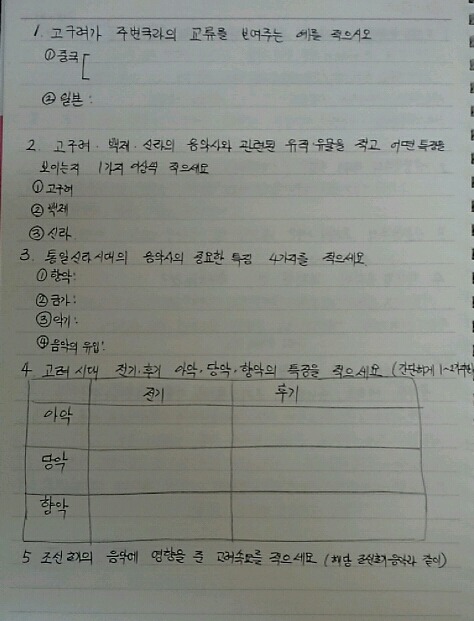 1. 고구려가 주변국과의 교류를 보여주는 예를 적으시오
① 중국 [
② 일본 :
2. 고구려 · 백제 · 신라의 음악사와 관련된 유적·유물을 적고 어떤 특징을
보이는지 1가지 이상씩 적으세요
① 고구려
② 백제
③ 신라
3. 통일신라시대의 음악사의 중요한 특징 4가지를 적으세요
① 향악:
② 금가:
③ 악기:
④ 음악의 유입:
4. 고려시대 전기·후기 아악·당악·향악의 특징을 적으세요 (간단하게 1~2가지)
전기 후기
아악
당악
향악
5 조선초기의 음악에 영향을 준 고려속요를 적으세요 (해당 조선초기음악과 같이)